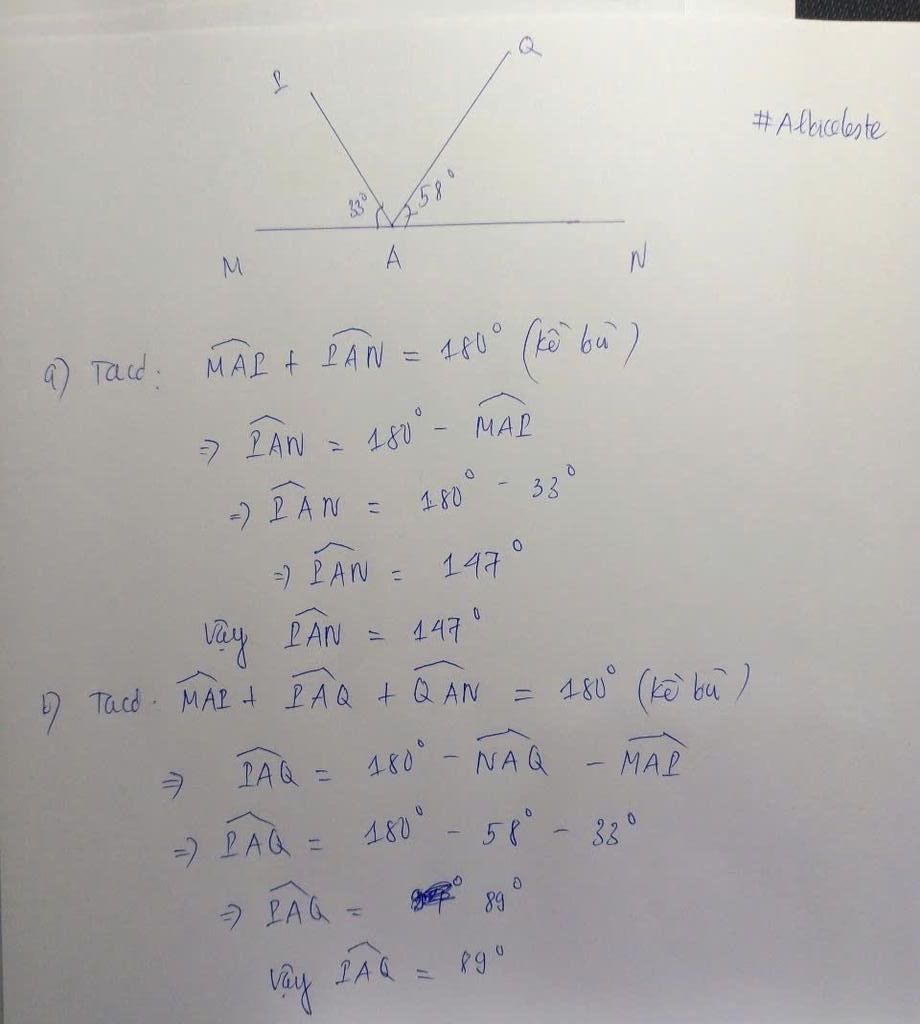 Q
P
#Albiceleste
33° 58°
M A N
a) Tacó: MAP + PAN = 180° (kề bù)
=> PAN = 180° - MAP
=> PAN = 180° - 33°
=> PAN = 147°
Vậy PAN = 147°
b) Tacó. MAP + PAQ + QAN = 180° (kề bù)
=> PAQ = 180° - NAQ - MAP
=> PAQ = 180° - 58° - 33°
=> PAQ = 89°
Vậy PAQ = 89°